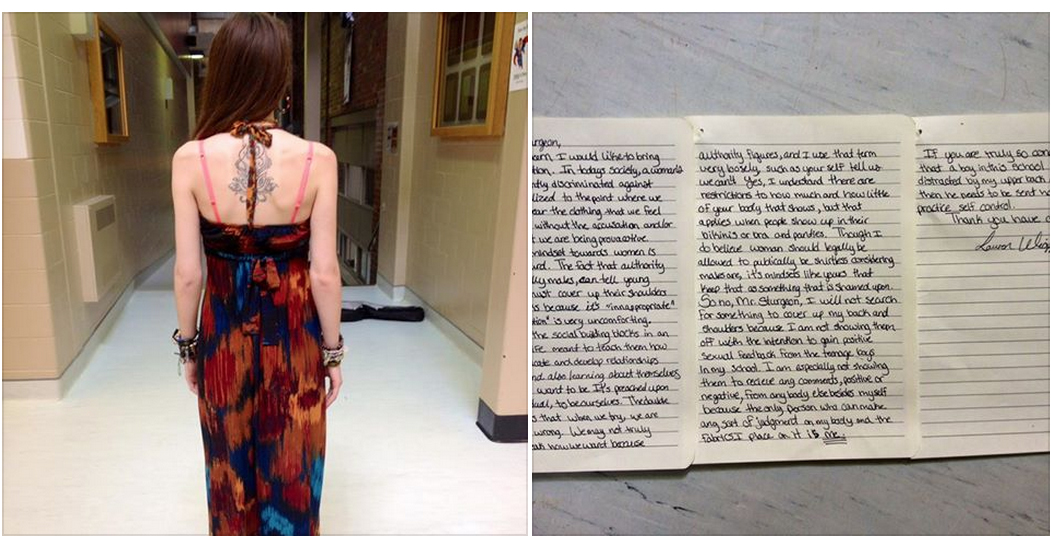 urgeon,
orn, I would like to bring
tion. In todays society, a woman is
ntly discriminated against
lized to the point where we
ear the clothing that we feel
without the accusation and/or
t we are being provocative
mindset towards women is
urd. The fact that authority
lly males, can tell young
ust cover up their shoulders
is because it's "innappropriate"
tion" is very uncomforting.
the social building blocks in an
ife meant to teach them how
cate and develop relationships
nd also learning about themselves
want to be. It's preached upon
dual, to be ourselves. The
s that when we try, we are
wrong. We may not truly
an how we want because
authority figures, and I use that term
very loosely, such as your self tell us
we can't. Yes, I understand there are
restrictions to how much and how little
of your body that shows, but that
applies when people show up in their
bikinis or bra and panties. Though I
do believe woman should legally be
allowed to publically be shirtless considering
males are, it's mindsets like yours that
keep that as something that is shamed upon.
So no, Mr. Sturgeon, I will not search
for something to cover up my back and
shoulders because I am not showing them
off with the intention to gain positive
sexual feedback from the teenage boys
in my school. I am especially not showing
them to recieve any comments, positive or
negative, from anybody else besides myself
because the only person who can make
any sort of judgment on my body and the
fabrics I place on it is me.
If you are truly so con
that a boy in this school
distracted by my upper back
then he needs to be sent ho
practice self control.
Thank you have a
Lauren Wigg